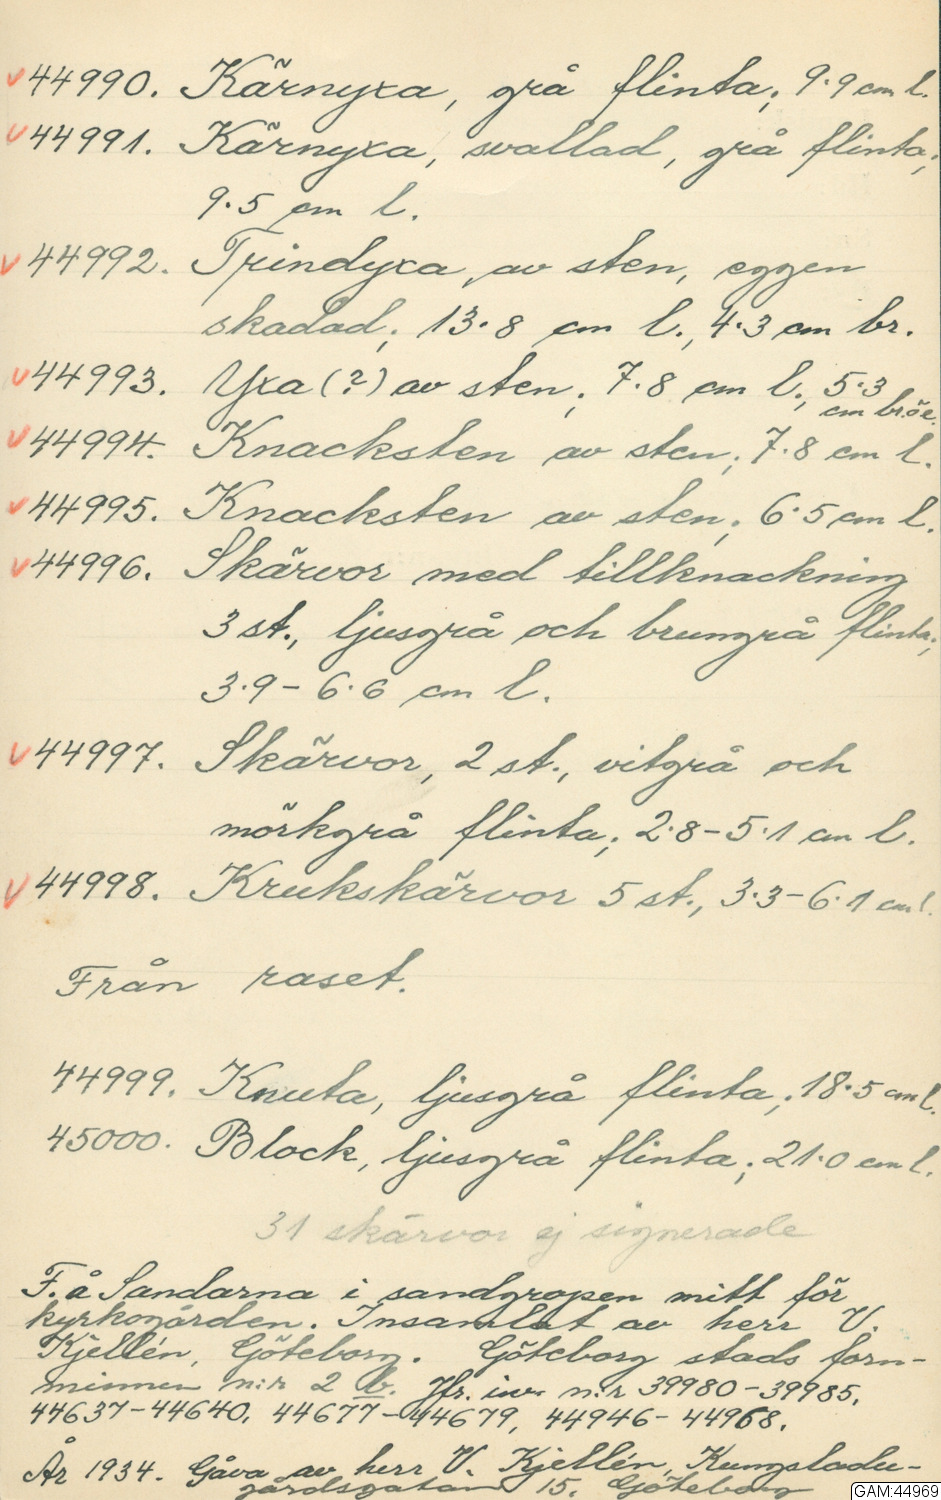 v 44990. Kärnyxa, grå flinta; 9·9 cm l.
v 44991. Kärnyxa, svallad, grå flinta;
9·5 cm l.
v 44992. Trindyxa, av sten, eggen
skadad; 13·8 cm l., 4·3 cm br.
v 44993. Yxa (?) av sten; 7·8 cm l., 5·3
cm bröe.
v 44994. Knacksten av sten; 7·8 cm l.
v 44995. Knacksten av sten; 6·5 cm l.
v 44996. Skärvor med tillknackning
3 st., ljusgrå och brungrå flinta;
3·9 – 6·6 cm l.
v 44997. Skärvor, 2 st., vitgrå och
mörkgrå flinta; 2·8 – 5·1 cm l.
v 44998. Krukskärvor 5 st., 3·3 – 6·1 cm l.
Från raset.
44999. Knuta, ljusgrå flinta; 18·5 cm l.
45000. Block, ljusgrå flinta; 21·0 cm l.
31 skärvor ej signerade
F. å Sandarna i sandgropen mitt för
kyrkogården. Insamlat av herr V.
Kjellén, Göteborg. Göteborg stads forn-
minnen n:r 2 b. Jfr. inv. n:r 39980 – 39985,
44637 – 44640, 44677 – 44679, 44946 – 44968.
År 1934. Gåva av herr V. Kjellén, Kungsladu-
gårdsgatan 15, Göteborg
GAM:44969